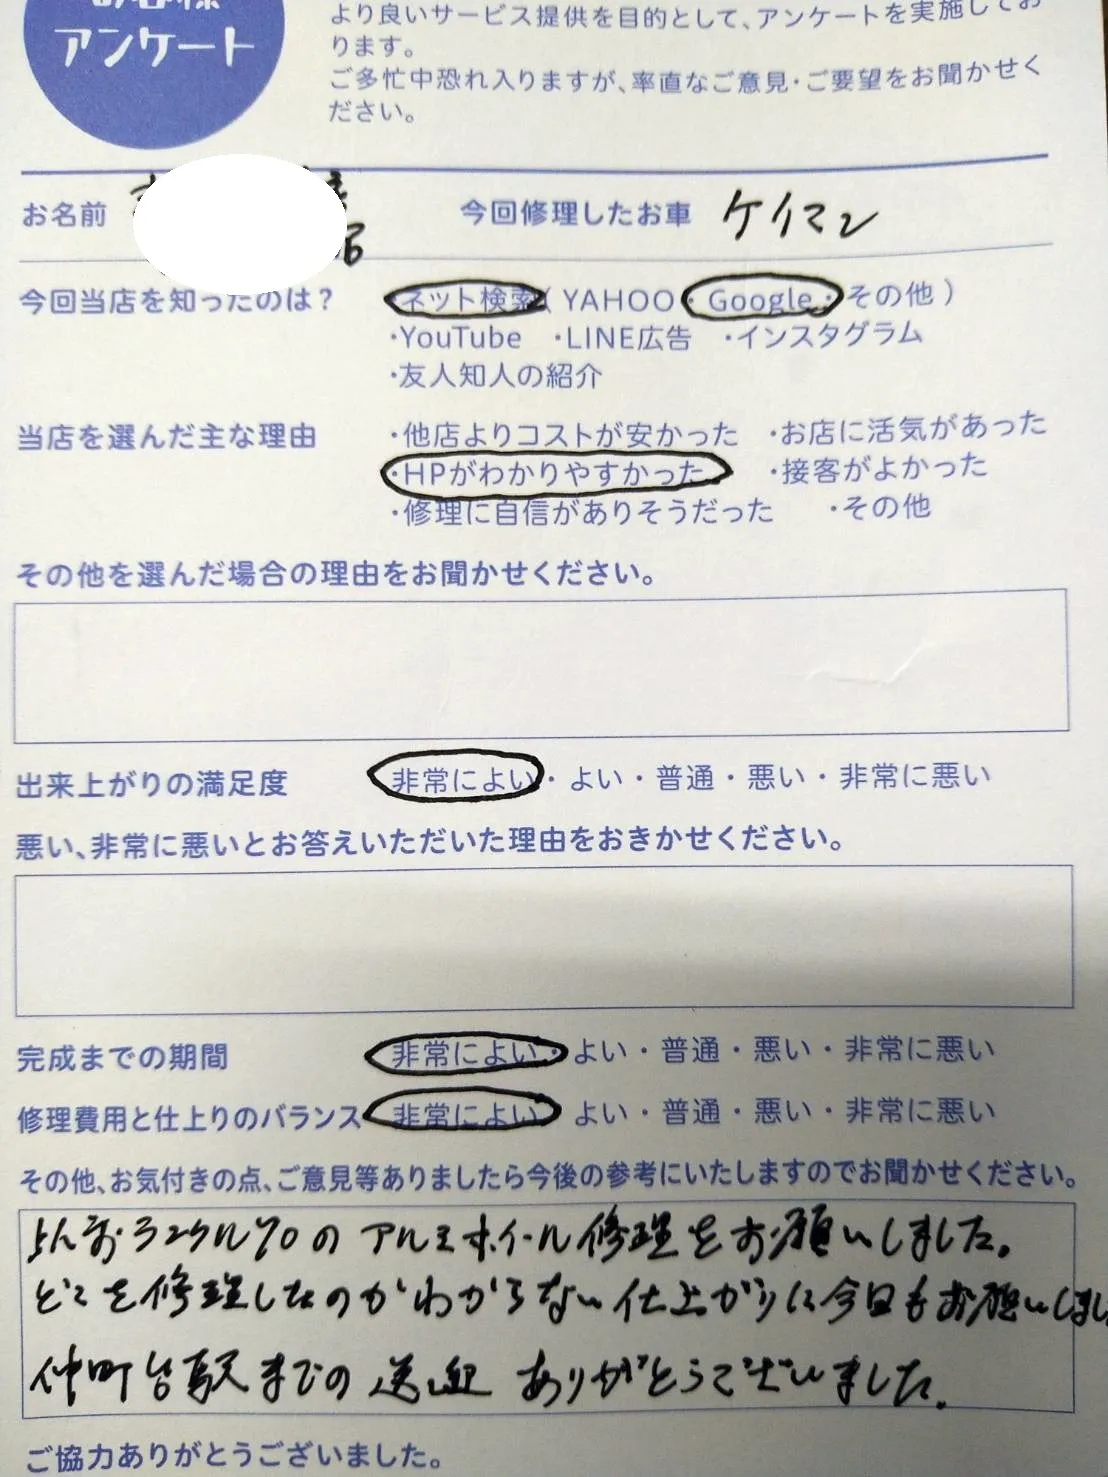 お客様
アンケート
より良いサービス提供を目的として、アンケートを実施してお
ります。
ご多忙中恐れ入りますが、率直なご意見・ご要望をお聞かせく
ださい。
お名前 今回修理したお車 ケイマン
今回当店を知ったのは？ ・ネット検索（YAHOO・Google・その他）
・YouTube ・LINE広告 ・インスタグラム
・友人知人の紹介
当店を選んだ主な理由 ・他店よりコストが安かった ・お店に活気があった
・HPがわかりやすかった ・接客がよかった
・修理に自信がありそうだった ・その他
その他を選んだ場合の理由をお聞かせください。
出来上がりの満足度 非常によい・よい・普通・悪い・非常に悪い
悪い、非常に悪いとお答えいただいた理由をおきかせください。
完成までの期間 非常によい・よい・普通・悪い・非常に悪い
修理費用と仕上りのバランス 非常によい・よい・普通・悪い・非常に悪い
その他、お気付きの点、ご意見等ありましたら今後の参考にいたしますのでお聞かせください。
のアルミホイール修理をお願いしました。
どこを修理したのかわからない仕上がりに今回もお願いしまし
仲町台駅までの送迎ありがとうございました。
ご協力ありがとうございました。